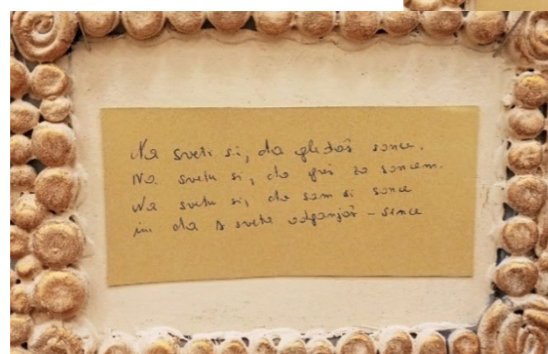 Na svetu si, da gledaš sonce.
Na svetu si, da greš za soncem.
Na svetu si, da sam si sonce
in da s sveta odganjaš – sence